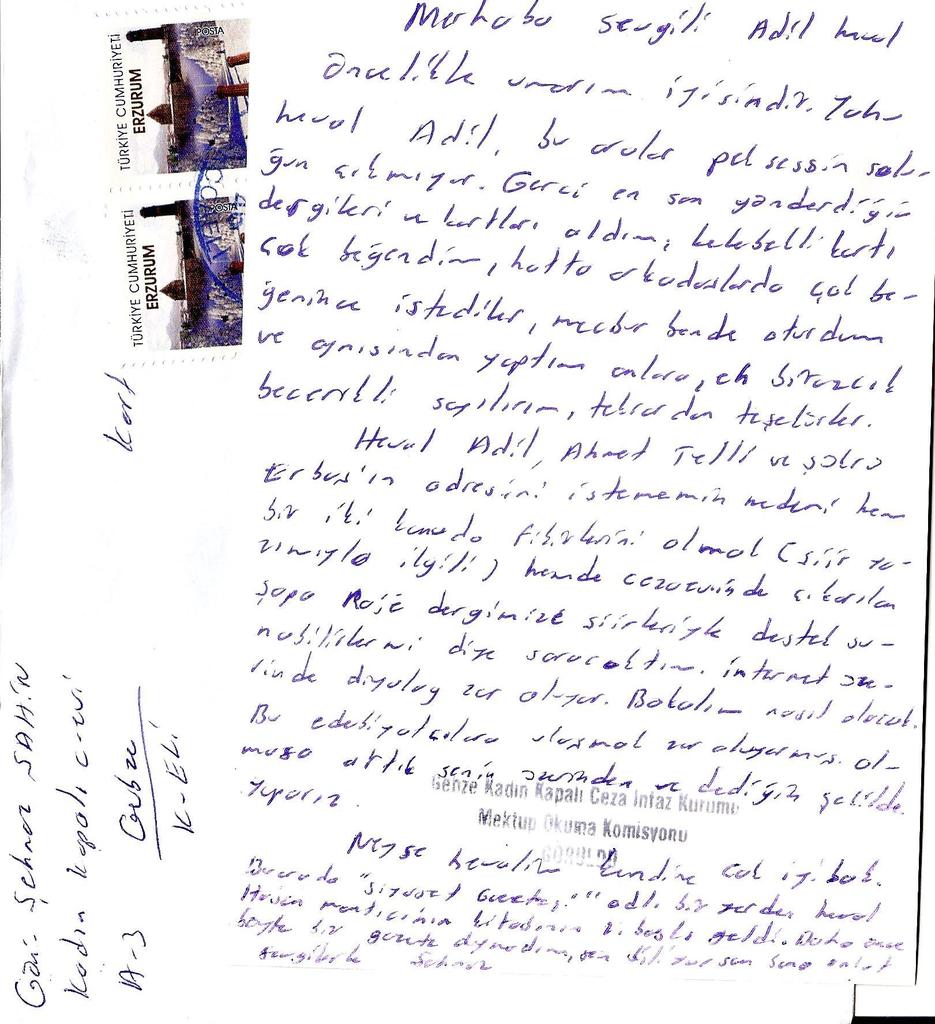 Merhaba sevgili Adil heval
Öncelikle umarım iyisindir. Yahu
heval Adil, bu aralar pek sessizsin solu-
ğun çıkmıyor. Gerçi en son gönderdiğin
dergileri ve kartları aldım, kelebekli kartı
çok beğendim, hatta arkadaşlarda çok be-
ğenince istediler, mecbur bende oturdum
ve aynısından yaptım onlara, eh birazcık
becerikli sayılırım, tekrardan teşekürler.
Heval Adil, Ahmet Telli ve Şükrü
Erbaş'ın adresini istememin nedeni hem
bir iki konuda fikirlerini almak (şiir ya-
zımıyla ilgili) hemde cezaevinde çıkarılan
dergimize şiirleriyle destek su-
nabilirler mi diye soracaktım. internet üze-
rinde diyalog zor oluyor. Bakalım nasıl olacak.
Bu edebiyatçılara ulaşmak zor oluyormuş. ol-
mazsa artık senin üzerinden ve dediğin şekilde
yaparız.
Neyse hevalim kendine çok iyi bak.
Burada "siyaset Gazetesi" adlı bir yerden heval
kitabının geldi. Daha önce
böyle bir gazete duymadım, sen
sevgilerle Şehnaz
Gebze Kadın Kapalı Ceza İnfaz Kurumu
Mektup Okuma Komisyonu
GÖRÜLDÜ
TÜRKİYE CUMHURİYETİ
ERZURUM
POSTA
TÜRKİYE CUMHURİYETİ
ERZURUM
POSTA
Kart
Gön: Şehnaz ŞAHİN
Kadın Kapalı c-evi
A-3 Gebze
K-ELİ